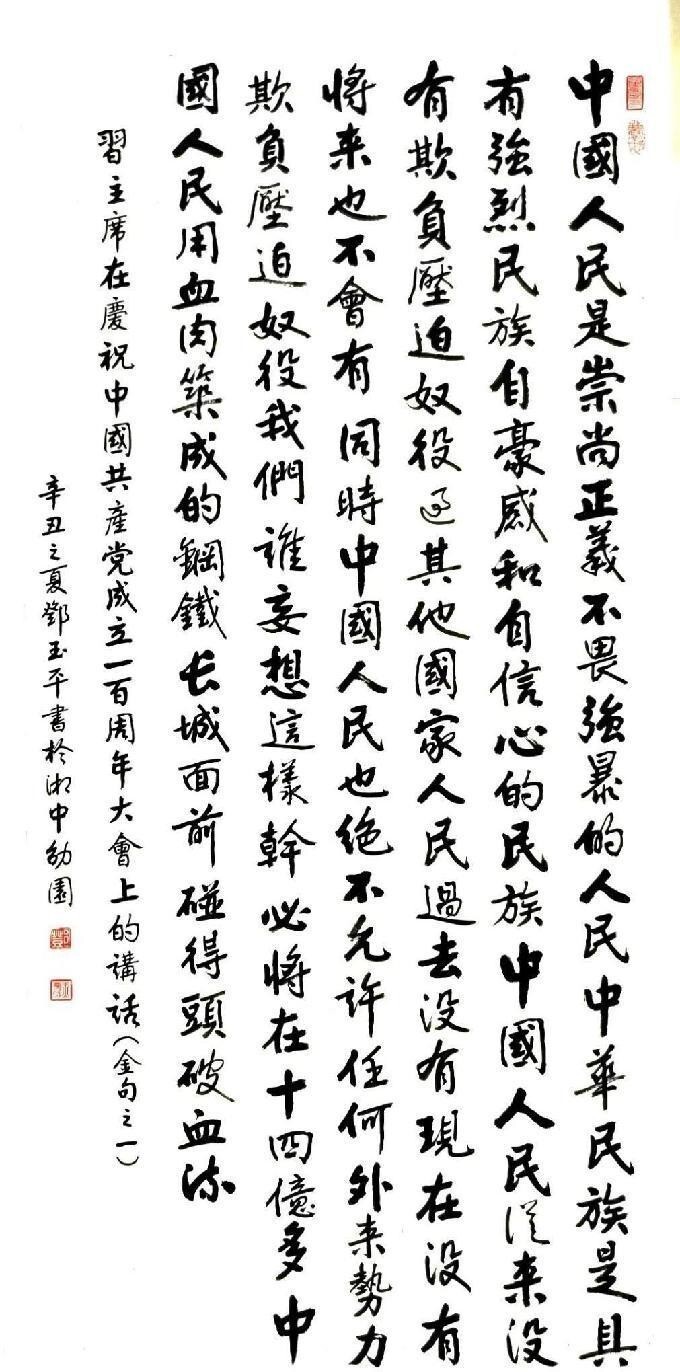 中國人民是崇尚正義不畏強暴的人民中華民族是具
有強烈民族自豪感和自信心的民族中國人民從来没
有欺負壓迫奴役过其他國家人民過去没有現在没有
将来也不會有同時中國人民也绝不允許任何外来勢力
欺負壓迫奴役我們誰妄想這樣幹必將在十四億多中
國人民用血肉築成的鋼鐵长城面前碰得頭破血流
習主席在慶祝中國共產党成立一百周年大會上的講話(金句之一)
辛丑之夏鄧玉平書於湘中幼園